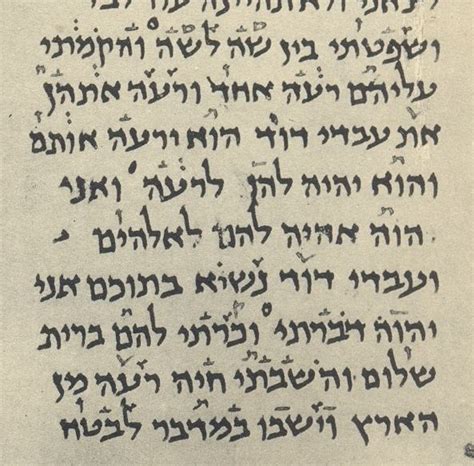 ושפטתי בין שה לשה והקמתי
עליהם רעה אחד ורעה אתהן
את עבדי דוד הוא ירעה אותם
והוא יהיה להן לרעה ואני
יהוה אהיה להם לאלהים
ועבדי דוד נשיא בתוכם אני
יהוה דברתי וכרתי להם ברית
שלום והשבתי חיה רעה מן
הארץ וישבו במדבר לבטח